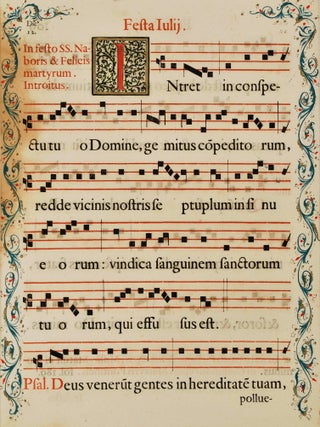 Festa Iulij.
Die
12.
In festo SS. Na-
boris & Felicis
martyrum.
Introitus.
INtret in conspe-
ctu tuo Domine, gemitus cōpeditorum,
redde vicinis nostris septuplum in sinu
eorum: vindica sanguinem sanctorum
tuorum, qui effusus est.
Psal. Deus venerūt gentes in hereditatē tuam,
pollue-